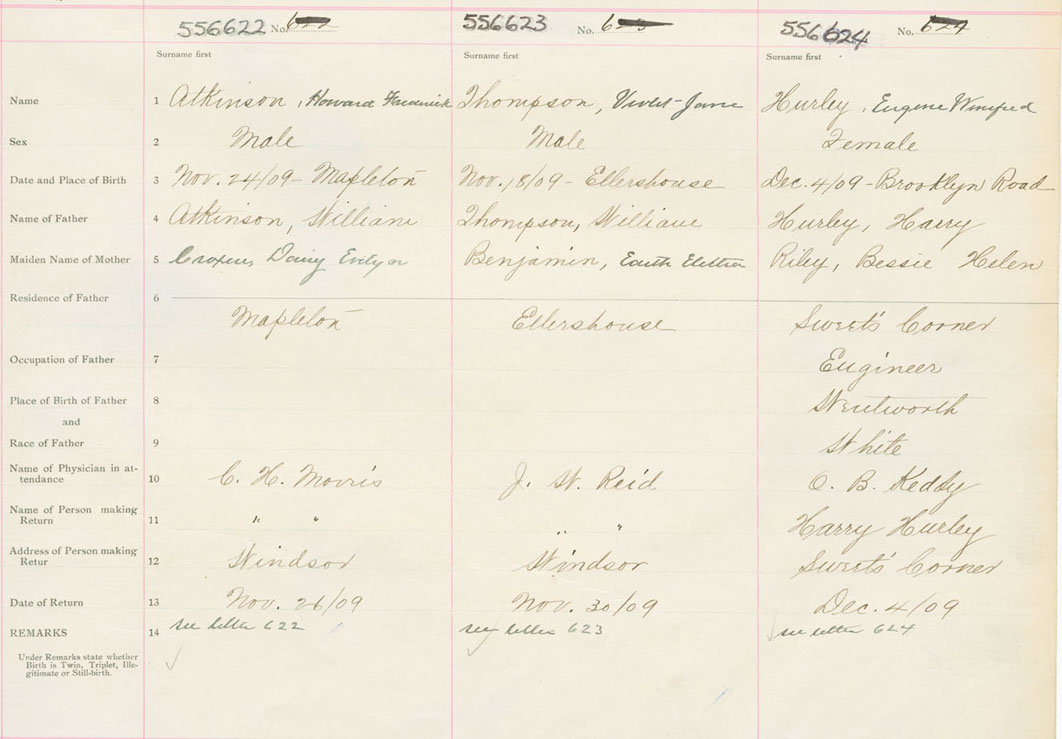 556622 No. 622
556623 No. 623
556624 No. 624
Surname first
Surname first
Surname first
Name 1 Atkinson, Howard Frederick Thompson, Violet-Jane Hurley, Eugene Winifred
Sex 2 Male Male Female
Date and Place of Birth 3 Nov. 24/09 - Mapleton Nov. 18/09 - Ellershouse Dec. 4/09 - Brooklyn Road
Name of Father 4 Atkinson, William Thompson, William Hurley, Harry
Maiden Name of Mother 5 Daisy Evelyn Benjamin, Riley, Bessie Helen
Residence of Father 6
Mapleton Ellershouse Sweet's Corner
Occupation of Father 7 Engineer
Place of Birth of Father 8 Wentworth
and
Race of Father 9 White
Name of Physician in at-
tendance 10 C. H. Morris J. W. Reid O. B. Keddy
Name of Person making
Return 11 " " " " Harry Hurley
Address of Person making
Retur 12 Windsor Windsor Sweet's Corner
Date of Return 13 Nov. 26/09 Nov. 30/09 Dec. 4/09
REMARKS 14 see letter 622 see letter 623 see letter 624
Under Remarks state whether
Birth is Twin, Triplet, Ille-
gitimate or Still-birth.